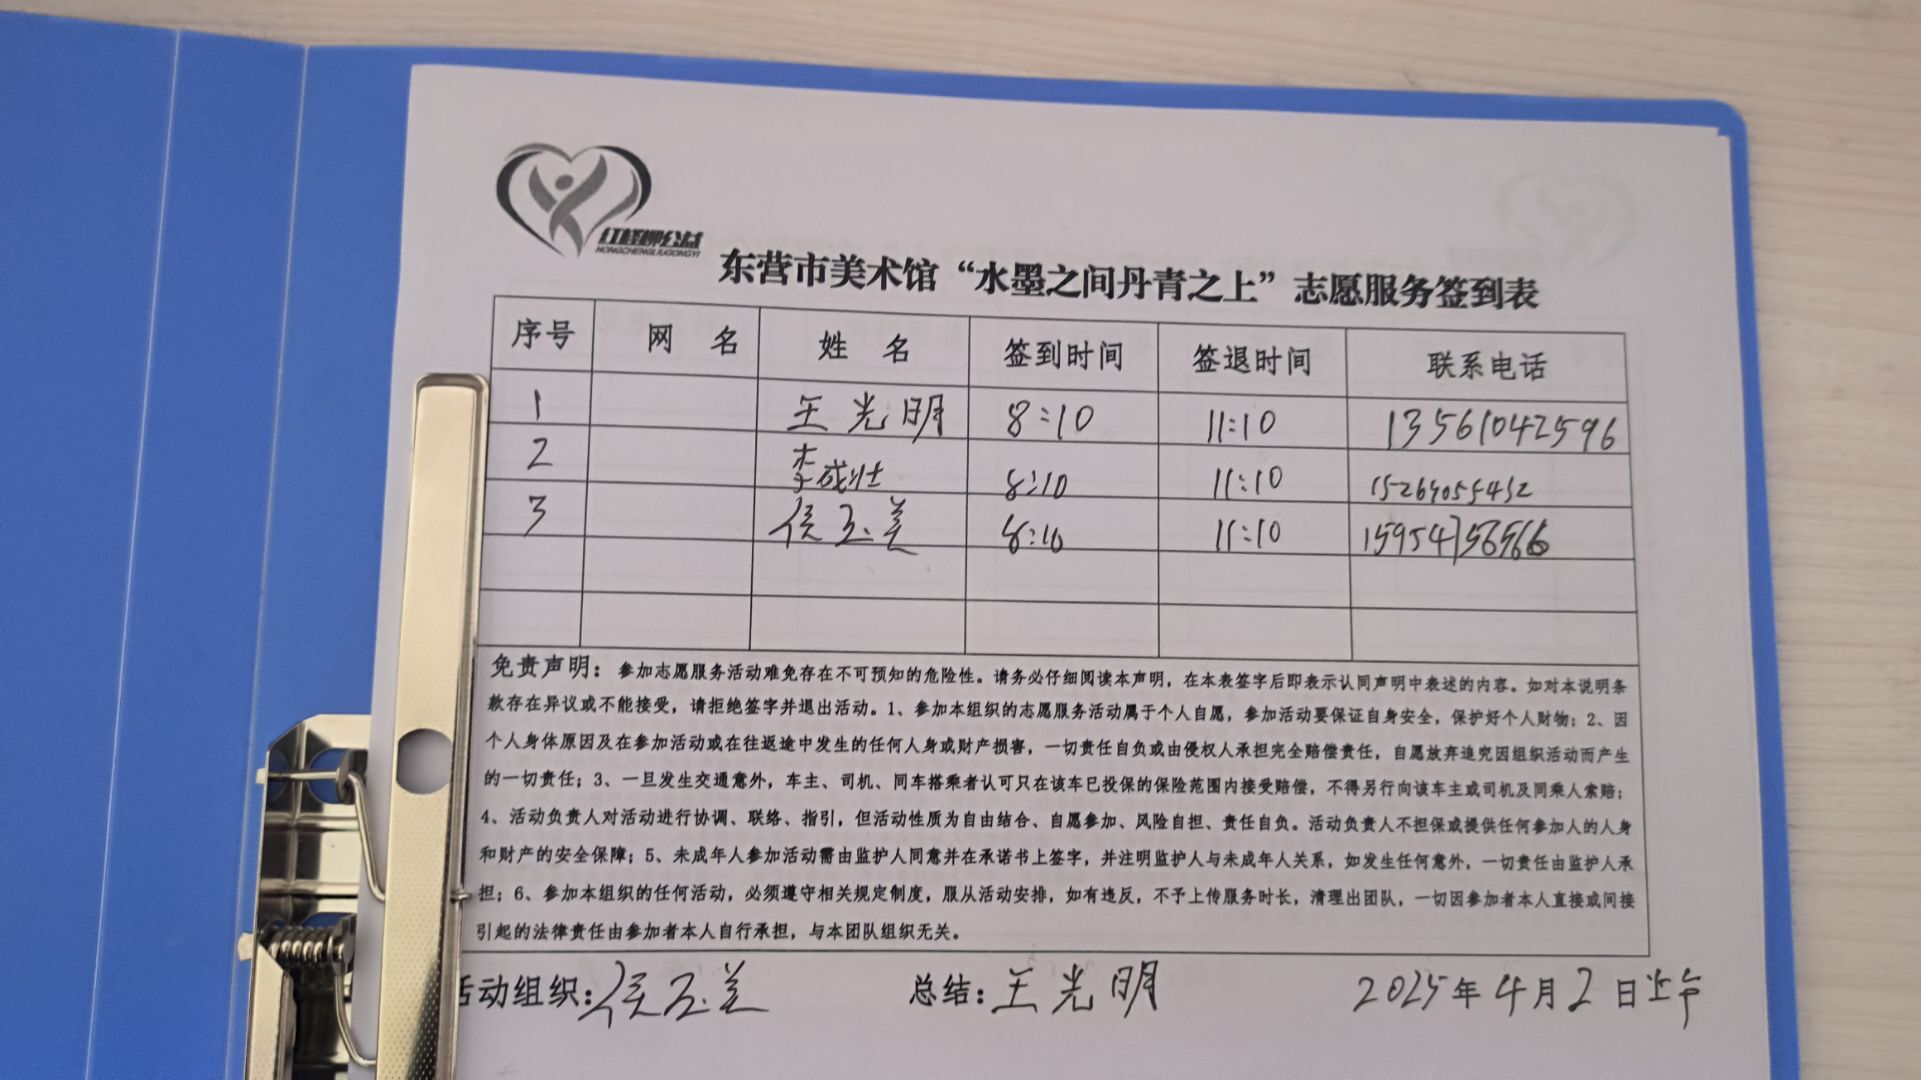 红柽柳公益
HONGCHENGLIUGONGYI
东营市美术馆“水墨之间丹青之上”志愿服务签到表
序号 网 名 姓 名 签到时间 签退时间 联系电话
1 王光明 8:10 11:10 13561042596
2 李成壮 8:10 11:10 15269055432
3 侯玉美 8:10 11:10
免责声明：参加志愿服务活动难免存在不可预知的危险性。请务必仔细阅读本声明，在本表签字后即表示认同声明中表述的内容。如对本说明条
款存在异议或不能接受，请拒绝签字并退出活动。1、参加本组织的志愿服务活动属于个人自愿，参加活动要保证自身安全，保护好个人财物；2、因
个人身体原因及在参加活动或在往返途中发生的任何人身或财产损害，一切责任自负或由侵权人承担完全赔偿责任，自愿放弃追究因组织活动而产生
的一切责任；3、一旦发生交通意外，车主、司机、同车搭乘者认可只在该车已投保的保险范围内接受赔偿，不得另行向该车主或司机及同乘人索赔；
4、活动负责人对活动进行协调、联络、指引，但活动性质为自由结合、自愿参加、风险自担、责任自负。活动负责人不担保或提供任何参加人的人身
和财产的安全保障；5、未成年人参加活动需由监护人同意并在承诺书上签字，并注明监护人与未成年人关系，如发生任何意外，一切责任由监护人承
担；6、参加本组织的任何活动，必须遵守相关规定制度，服从活动安排，如有违反，不予上传服务时长，清理出团队，一切因参加者本人直接或间接
引起的法律责任由参加者本人自行承担，与本团队组织无关。
活动组织：侯玉美 总结：王光明 2025年4月2日上午